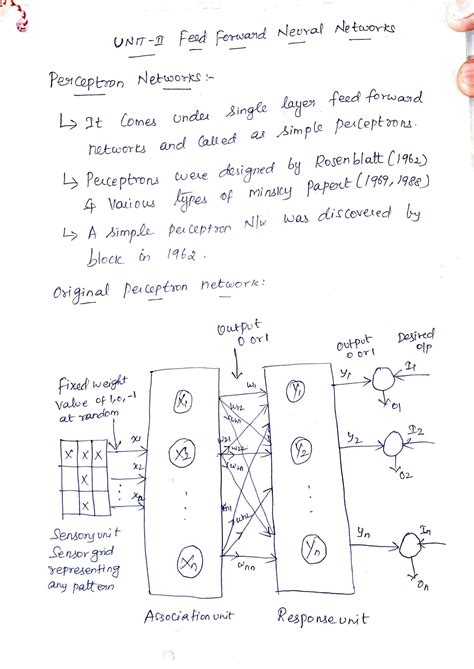 UNIT-II Feed Forward Neural Networks
Perceptron Networks:-
↳ It Comes under single layer feed forward
networks and called as simple perceptrons.
↳ Perceptrons were designed by Rosenblatt (1962)
& Various types of Minsky Papert (1969, 1988)
↳ A simple perceptron N/w was discovered by
block in 1962.
Original Perceptron network:
Output
0 or 1
output
0 or 1
Desired
o/p
Fixed weight
Value of 1, 0, -1
at random
X X X
X
X
x1
x2
xn
X1
X2
Xn
w1
w12
w21
w2n
wn2
wnn
Y1
Y2
Yn
y1
y2
yn
I1
I2
In
O1
O2
On
Sensory unit
Sensor grid
representing
any pattern
Association unit
Response unit